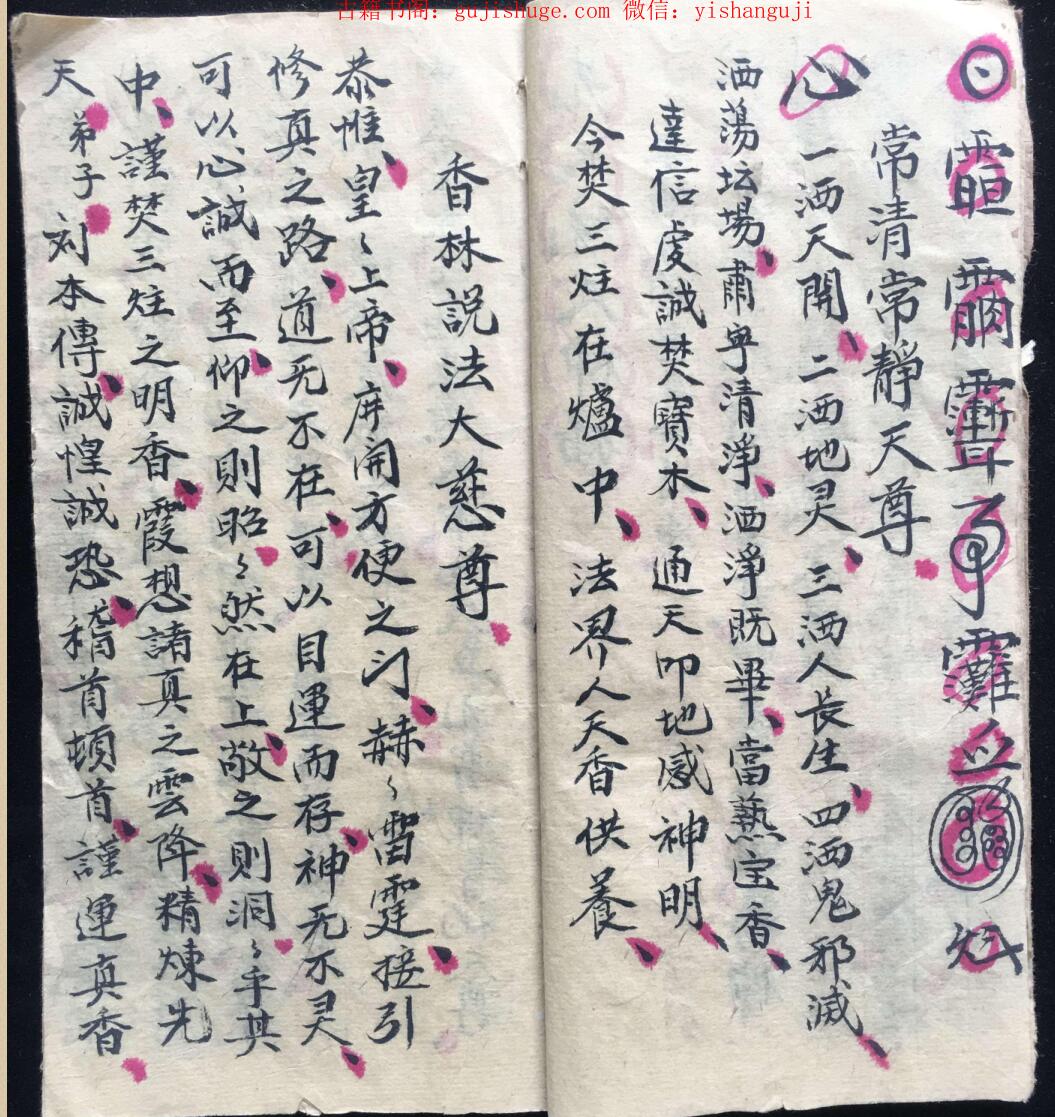 古籍书阁：gujishuge.com 微信：yishanguji
常清常靜天尊
心 一洒天開、二洒地灵、三洒人長生、四洒鬼邪滅、
洒蕩坛場、肅寧清淨、洒淨既畢、當爇宝香、
達信虔誠焚寶木、通天叩地感神明、
今焚三炷在爐中、法界人天香供養、
香林説法大慈尊
恭惟、皇〻上帝、开開方便之门、赫〻雷霆、接引
修真之路、道无不在、可以目運而存、神无不灵、
可以心誠而至、仰之則昭〻然在上、敬之則洞〻乎其
中、謹焚三炷之明香、霞想諸真之雲降、精煉先
天 弟子刘本傳、誠惶誠恐、稽首頓首、謹運真香